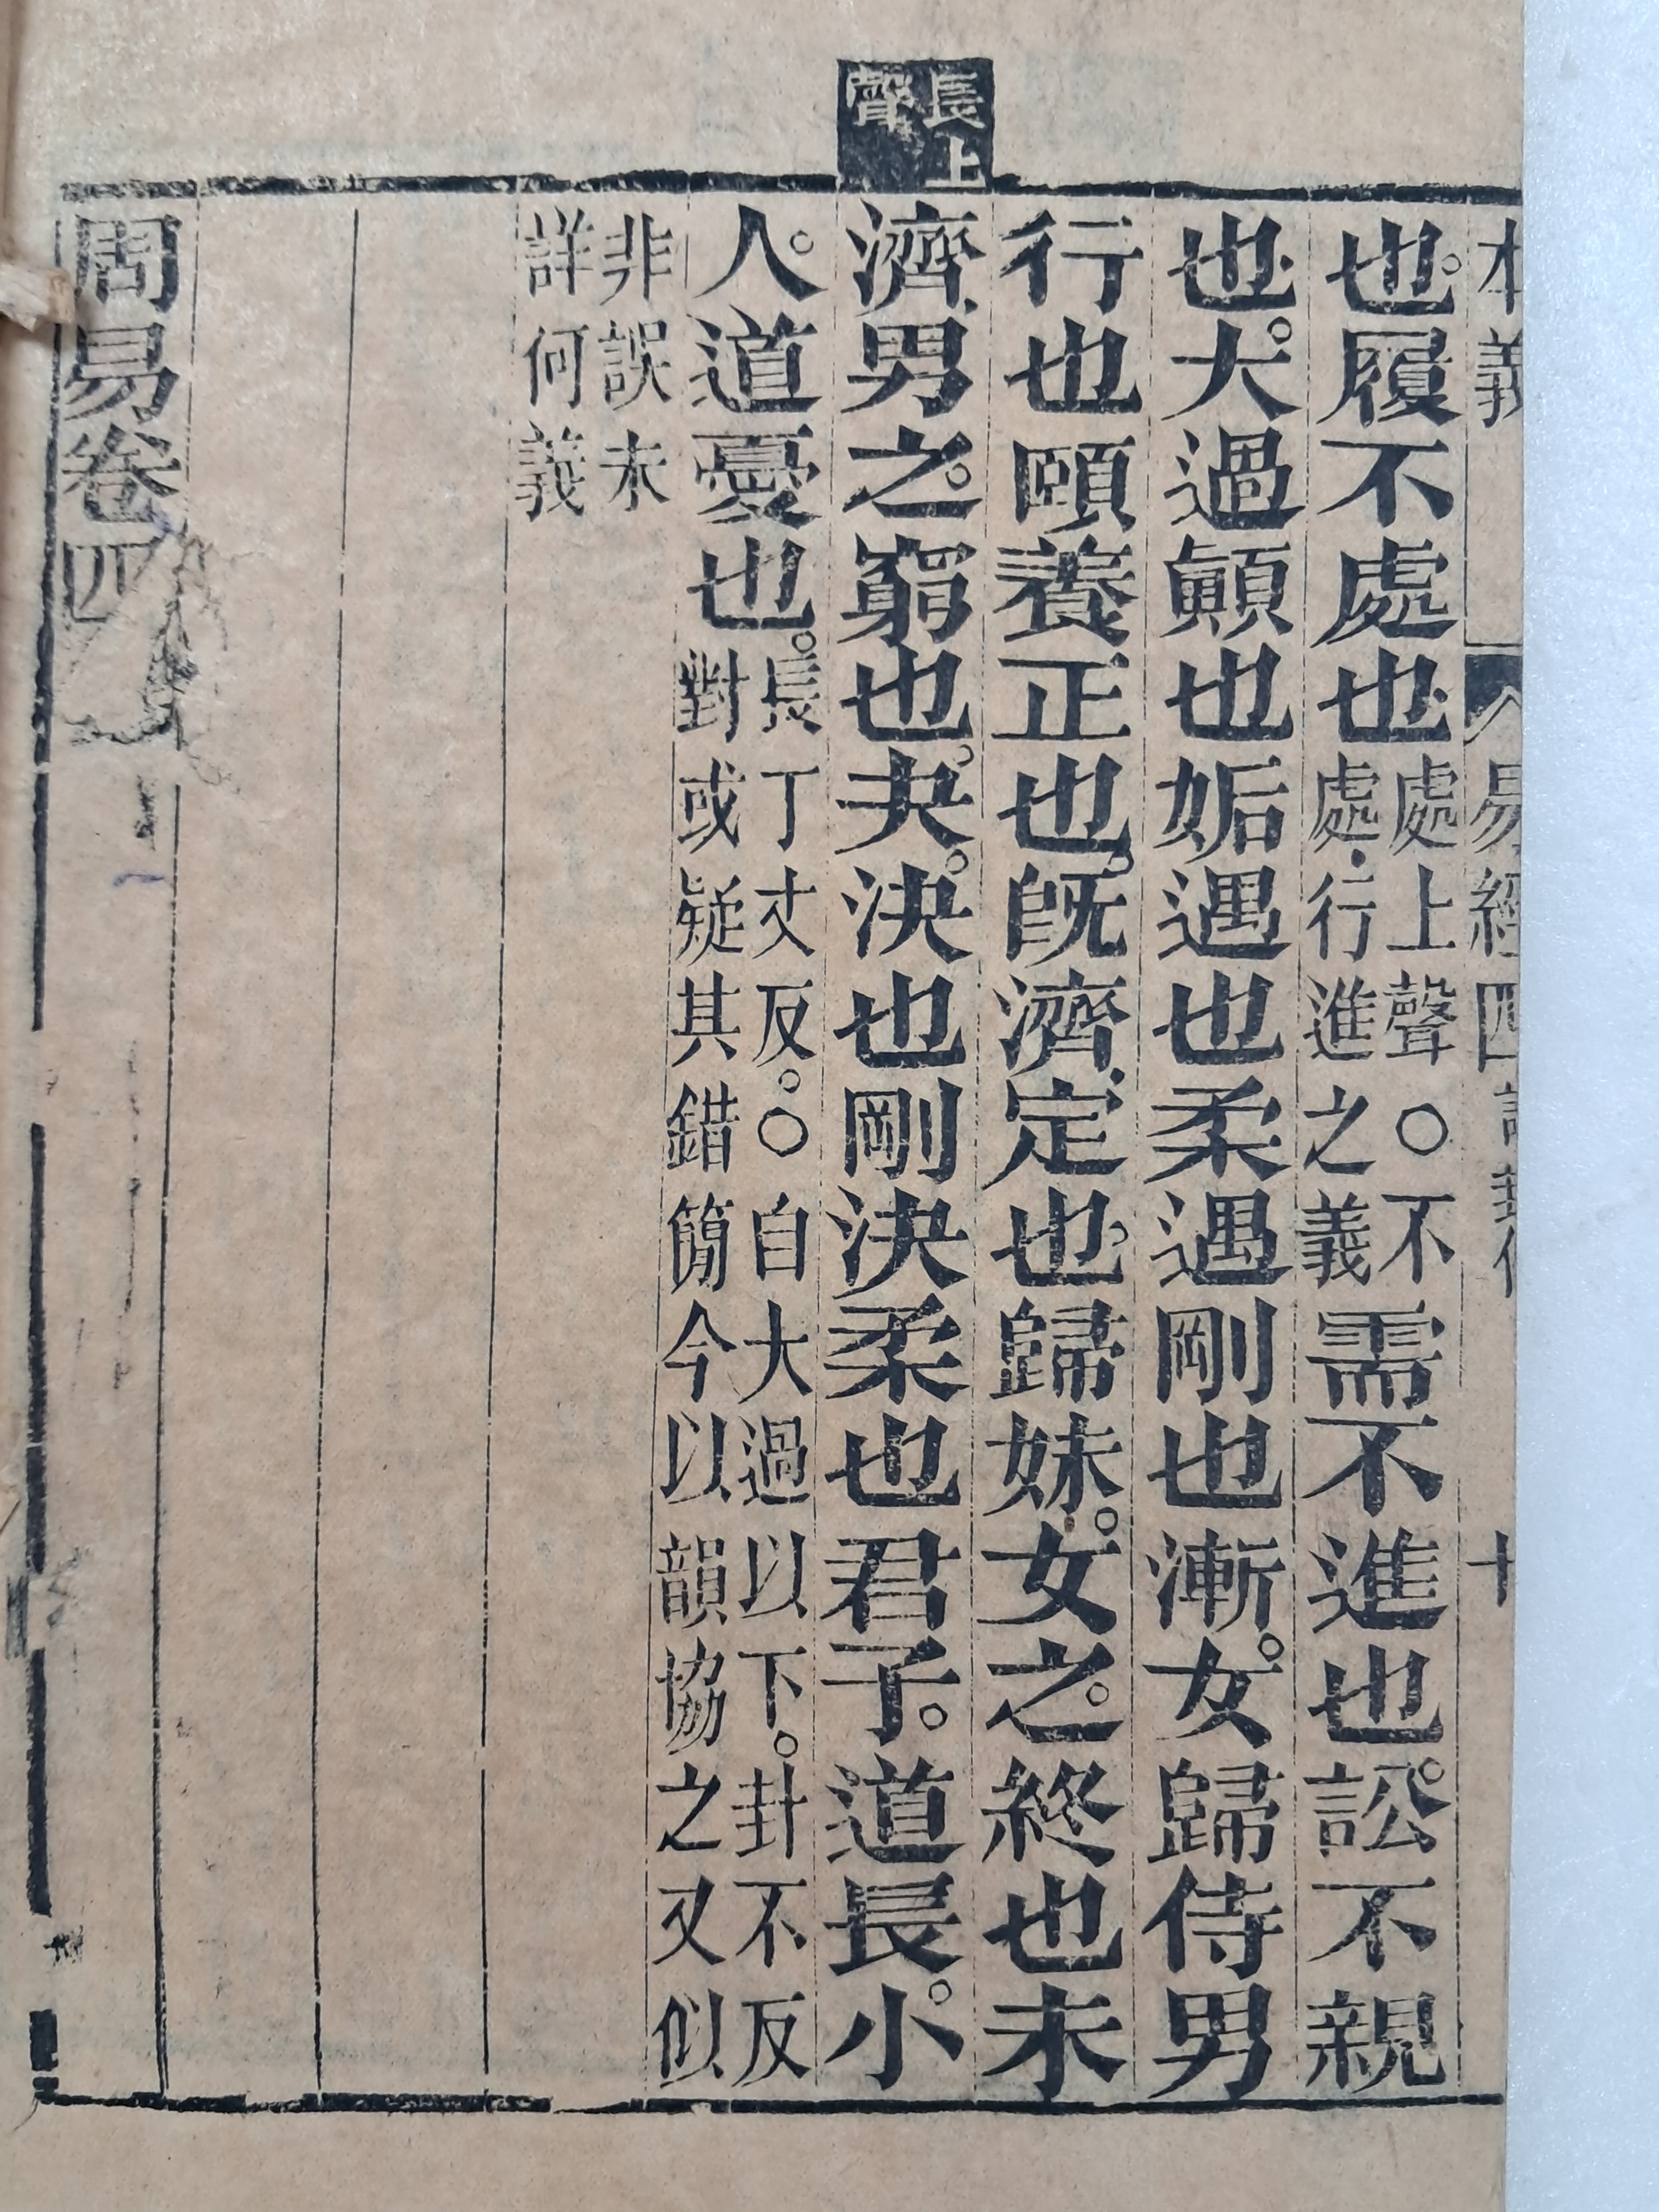 長上
聲
本義 易經四 十
也履不處也
處上聲○不
處行進之義
需不進也訟不親
也大過顚也姤遇也柔遇剛也漸女歸侍男
行也頤養正也旣濟定也歸妹女之終也未
濟男之窮也夬決也剛決柔也君子道長小
人道憂也
長丁丈反○自大過以下卦不反
對或疑其錯簡今以韻協之又似
非誤未
詳何義
周易卷四